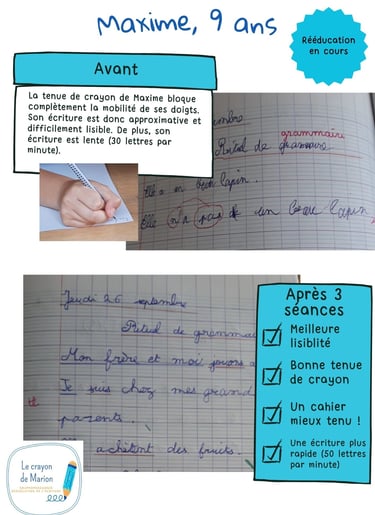 Maxime, 9 ans
Rééducation
en cours
Avant
La tenue de crayon de Maxime bloque
complètement la mobilité de ses doigts.
Son écriture est donc approximative et
difficilement lisible. De plus, son
écriture est lente (30 lettres par
minute).
mbre
grammaire
Rituel de grammaire
Elle a un beau lapin.
Elle n'a pas de un beau lapin
Jeudi 26 septembre
Rituel de grammai
Mon frère et moi jouons a
Je suis chez mes grand
parents.
achètent des fruits.
Après 3
séances
Meilleure
lisiblité
Bonne tenue
de crayon
Un cahier
mieux tenu !
Une écriture plus
rapide (50 lettres
par minute)
Le crayon
de Marion